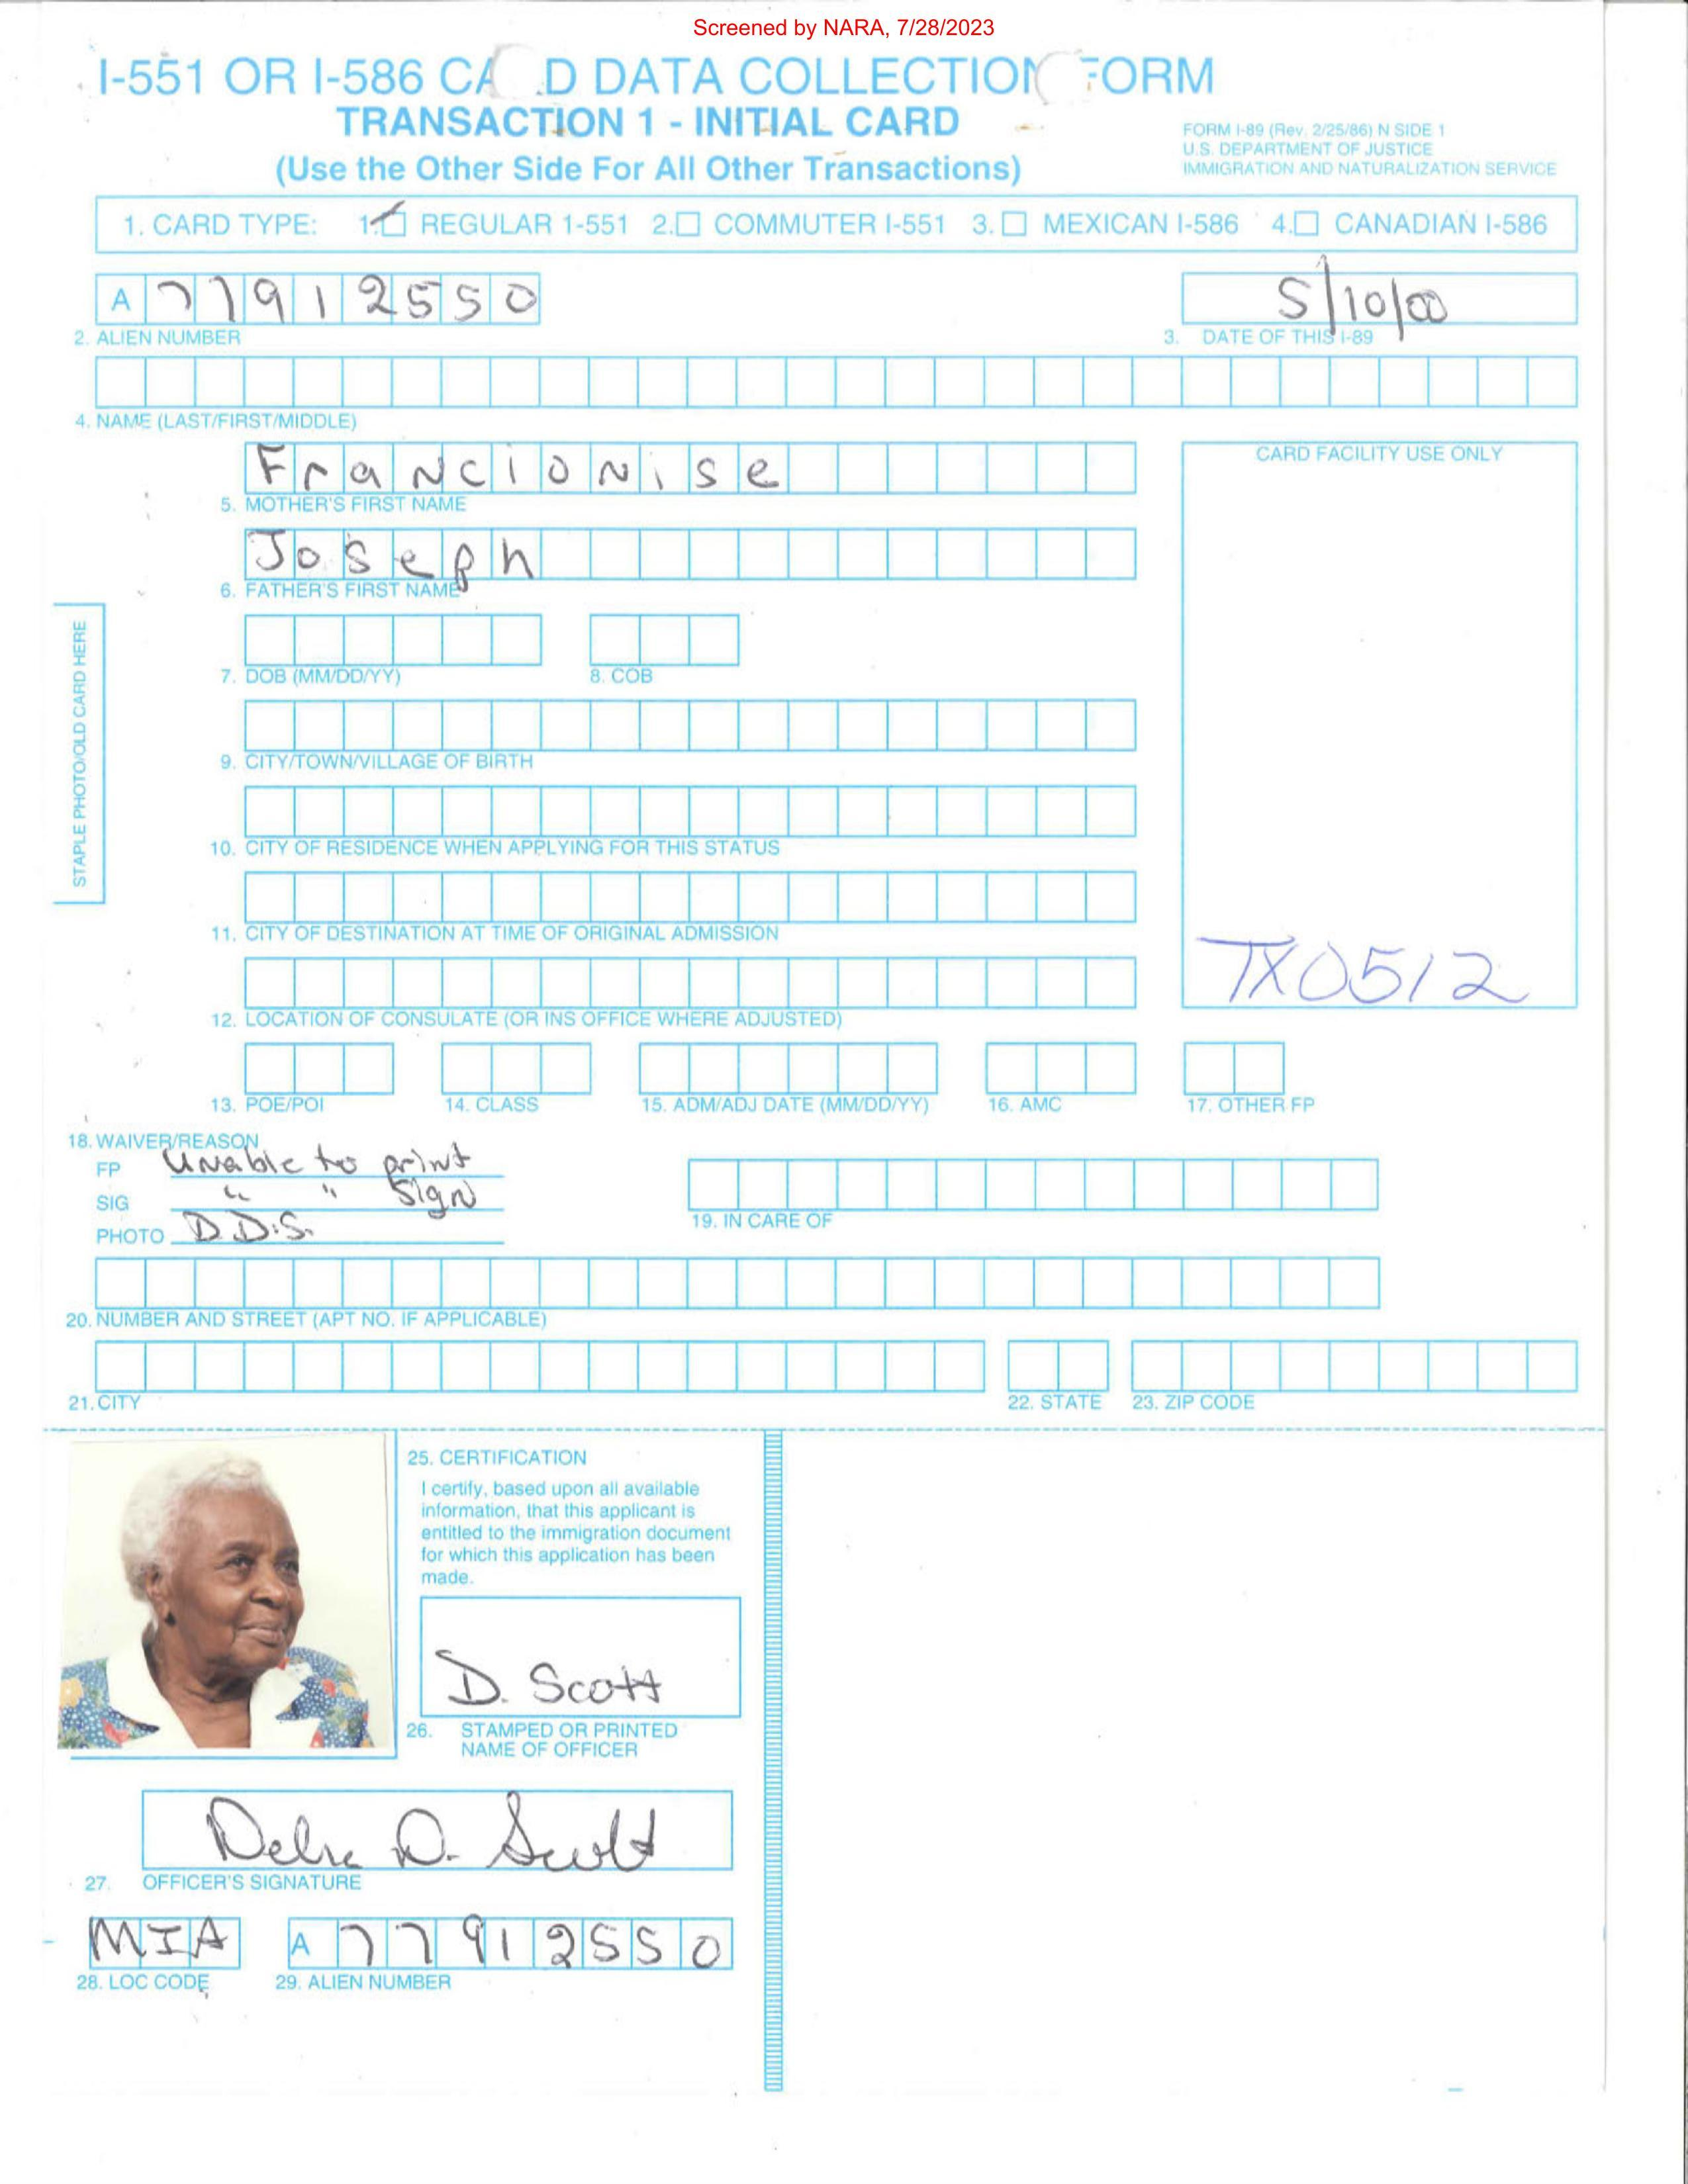 Screened by NARA, 7/28/2023
I-551 OR I-586 CA D DATA COLLECTION FORM
TRANSACTION 1 - INITIAL CARD
(Use the Other Side For All Other Transactions)
FORM I-89 (Rev. 2/25/86) N SIDE 1
U.S. DEPARTMENT OF JUSTICE
IMMIGRATION AND NATURALIZATION SERVICE
1. CARD TYPE: 1. REGULAR 1-551 2. COMMUTER I-551 3. MEXICAN I-586 4. CANADIAN I-586
A 77912550
5/10/00
2. ALIEN NUMBER
3. DATE OF THIS I-89
4. NAME (LAST/FIRST/MIDDLE)
Francionise
CARD FACILITY USE ONLY
5. MOTHER'S FIRST NAME
Joseph
6. FATHER'S FIRST NAME
STAPLE PHOTO/OLD CARD HERE
7. DOB (MM/DD/YY)
8. COB
9. CITY/TOWN/VILLAGE OF BIRTH
10. CITY OF RESIDENCE WHEN APPLYING FOR THIS STATUS
11. CITY OF DESTINATION AT TIME OF ORIGINAL ADMISSION
TX0512
12. LOCATION OF CONSULATE (OR INS OFFICE WHERE ADJUSTED)
13. POE/POI
14. CLASS
15. ADM/ADJ DATE (MM/DD/YY)
16. AMC
17. OTHER FP
18. WAIVER/REASON
FP Unable to print
SIG " " Sign
PHOTO D.D.S.
19. IN CARE OF
20. NUMBER AND STREET (APT NO. IF APPLICABLE)
21. CITY
22. STATE
23. ZIP CODE
25. CERTIFICATION
I certify, based upon all available
information, that this applicant is
entitled to the immigration document
for which this application has been
made.
D. Scott
26. STAMPED OR PRINTED
NAME OF OFFICER
D. Scott
27. OFFICER'S SIGNATURE
MIA
A 77912550
28. LOC CODE
29. ALIEN NUMBER